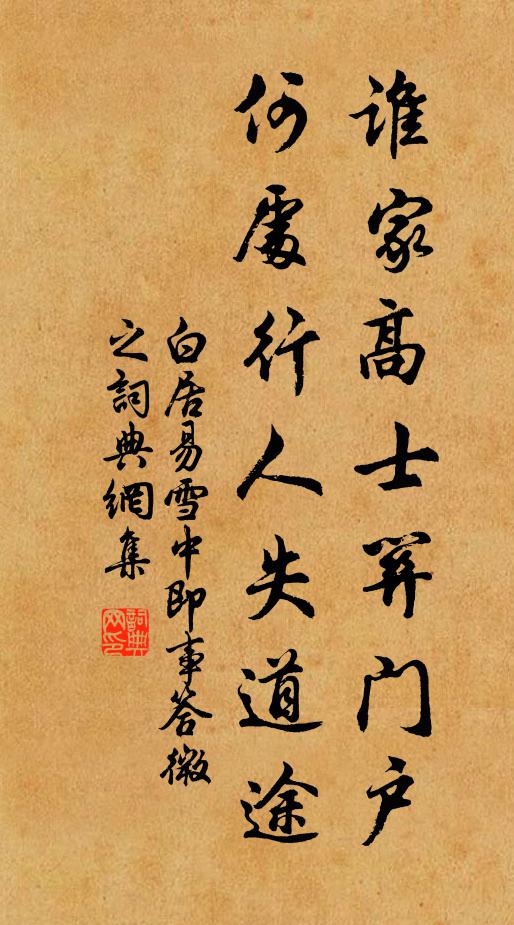 誰家高士關門戶
何處行人失道途
白居易雪中即事答微
之詞典網集
詞典
网印